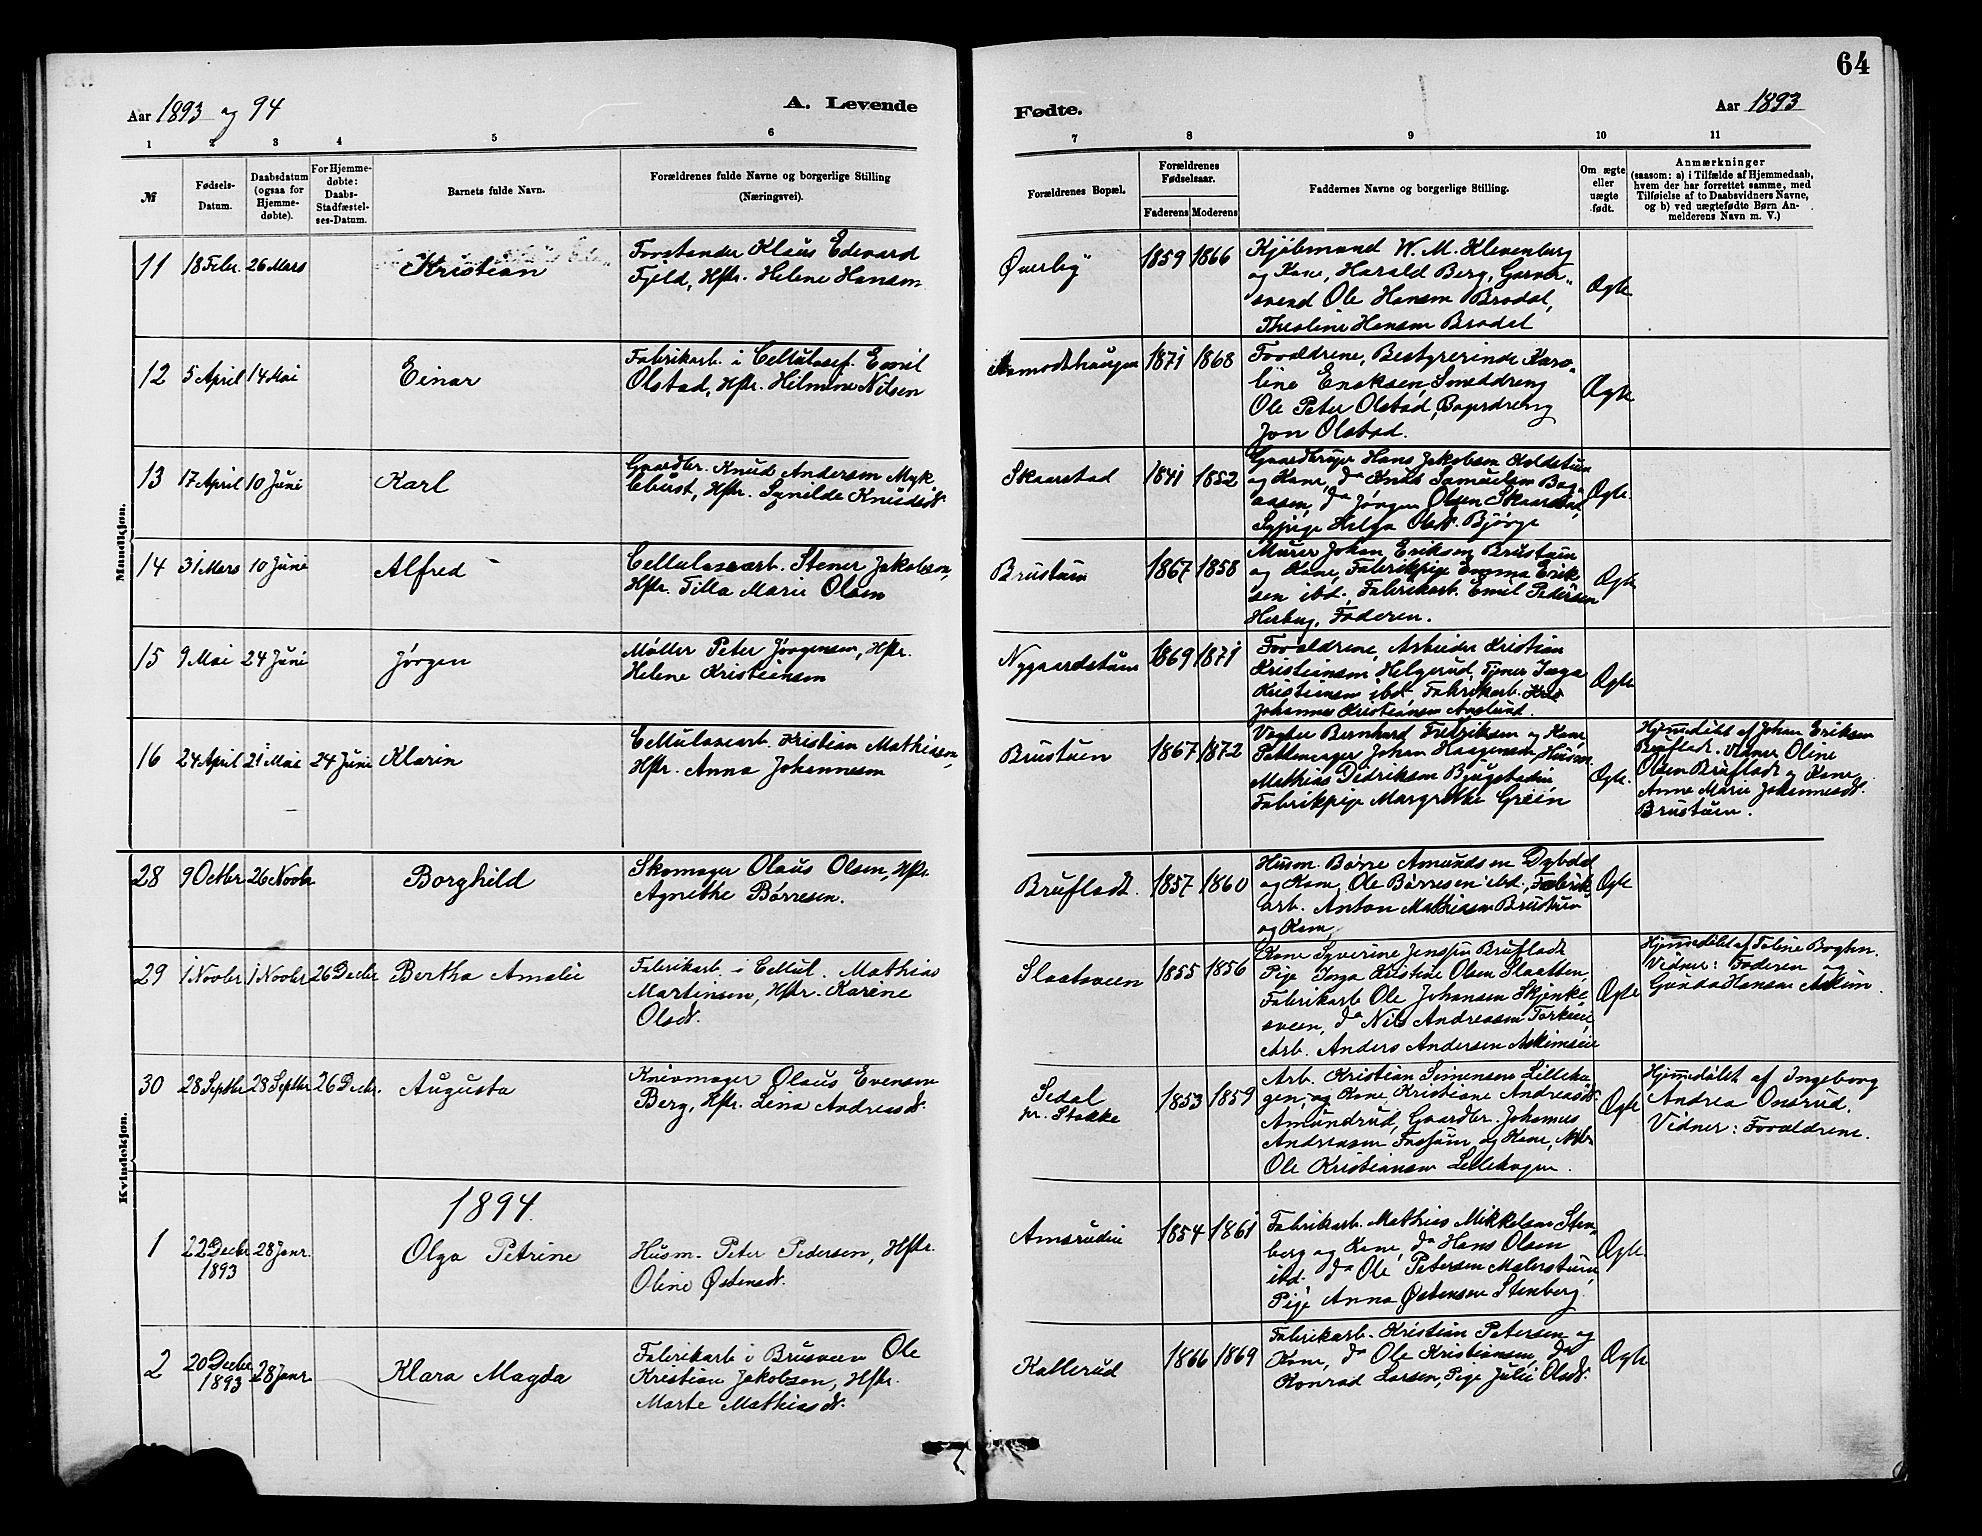 64
Aar 1893 og 94
A. Levende
Fødte.
Aar 1893
1 2 3 4 5 6 7 8 9 10 11
№
Fødsels-Datum.
Daabsdatum (ogsaa for Hjemme-døbte).
For Hjemme-døbte: Daabs-Stadfæstel-ses-Datum.
Barnets fulde Navn.
Forældrenes fulde Navne og borgerlige Stilling
(Næringsvei).
Forældrenes Bopæl.
Forældrenes Fødselsaar.
Faderens Moderens
Faddernes Navne og borgerlige Stilling.
Om ægte eller uægte født.
Anmærkninger
(saasom: a) i Tilfælde af Hjemmedaab,
hvem der har forrettet samme, med
Tilføielse af to Daabsvidners Navne,
og b) ved uægtefødte Børn An-
melderens Navn m. V.)
Mandkjøn.
11 18 Febr. 26 Mars Kristian
Forstander Klaus Edvard
Fjeld, Hstr. Helene Hansen
Øverby 1859 1866
Kjøbmand W. M. Klevenberg
og Kone, Harald Berg, Garver-
svend Ole Hansen Brodal,
Theoline Hansen Brodal
Ægte
12 5 April 14 Mai Einar
Fabrikarb. i Cellulosef. Emil
Olstad, Hstr. Hilmine Nilsen
Aamodthaugen 1871 1868
Forældrene, Bestyrerinde Karo-
line Eriksen, Smeddreng
Ole Peter Olstad, Bagerdreng
Jon Olstad.
Ægte
13 17 April 10 Juni Karl
Gaardbr. Knud Andersen Myk
lebust, Hstr. Synelde Knudsdt.
Skaarstad 1841 1852
Gaardbruger Hans Jakobsen Koldstuen
og Kone, do Knud Samuelsen Bag-
aasen, do Jørgen Olsen Skaarstad,
Sypige Helga Olsdt. Bjørge
Ægte.
14 31 Mars 10 Juni Alfred
Cellulosearb. Stener Jakobsen,
Hstr. Tilla Marie Olsen
Brustuen 1867 1858
Murer Johan Eriksen Brustuen
og Kone, Fabrikpige Emma Erik
sen ibd., Fabrikarb. Emil Pedersen
Herbug, Faderen.
Ægte
15 9 Mai 24 Juni Jørgen
Møller Peter Jørgensen, Hstr.
Helene Kristiansen
Nygaardstuen 1869 1871
Forældrene, Arbeider Kristian
Kristiansen Helgerud, Tjener Inga
Kristiansen ibd. Fabrikarb.
Johannes Kristiansen Aaslund.
Ægte
16 24 April 21 Mai 24 Juni Klarin
Cellulosearb. Kristian Mathiasen,
Hstr. Anna Johannesen
Brustuen 1867 1872
Vogter Bernhard Fredriksen og Kone
Pottemager Johan Haagensen, Husm.
Mathias Didriksen Bjugstadeie
Fabrikpige Margrethe Grein
Ægte.
Hjemmedøbt af Johan Eriksen
Bruflad. Vidner Oline
Olsen Brufladt og Kone
Anne Marie Johannesdt.
Brustuen.
Kvindekjøn.
28 9 Octbr 26 Novbr Borghild
Skomager Olaus Olsen, Hstr
Agnethe Børresen.
Bruflodt. 1857 1860
Husm. Børre Amundsen Dybdal
og Kone, Ole Børresen ibd., Fabrik
arb. Anton Mathisen Brustuen
og Kone,
Ægte
29 1 Novbr 1 Novbr 26 Decbr Bertha Amalie
Fabrikarb. i Cellul. Mathias
Martinsen, Hstr. Karine
Olsdt.
Slaatsveen 1855 1856
Kone Syverine Jenssen Bruflodt
Pige Inga Kristine Olsen Slaatten,
Fabrikarb Ole Johansen Skjenke
sveen, do Nils Andreassen Torkeie,
Arb. Anders Andersen Askimseie
Ægte
Hjemmedøbt af Toline Boghen.
Vidner: Faderen og
Gunda Hansen Askim.
30 28 Septbr 28 Septbr 26 Decbr. Augusta
Knivmager Olaus Evensen
Berg, Hstr. Lina Andreasdt.
Sedal
pr. Stokke 1853 1859
Arb. Kristian Simensen Lilleha-
gen, og Kone, Kristiane Andreasdt.
Amundrud, Gaardbr. Johannes
Andreasen Fossum og Kone, Arb.
Ole Kristiansen Lillehagen.
Ægte
Hjemmedøbt af Ingeborg
Andrea Onsrud.
Vidner: Forældrene.
1894.
1 22 Decbr 1893 28 Janr. Olga Petrine
Husm. Peter Pedersen, Hstr.
Oline Østensdt.
Amsrudeie 1854 1861
Fabrikarb. Mathias Mikkelsen Sten-
berg og Kone, do Hans Olsen
ibd. do Ole Petersen Malerstuen
Pige Anna Østensen Stenberg.
Ægte
2 20 Decbr 1893 28 Janr. Klara Magda
Fabrikarb i Brusveen Ole
Kristian Jakobsen, Hstr.
Marte Mathiasdt.
Kallerud 1866 1869
Fabrikarb. Kristian Petersen og
Kone, do Ole Kristiansen, do
Konrad Larsen, Pige Julie Olsdt.
Ægte